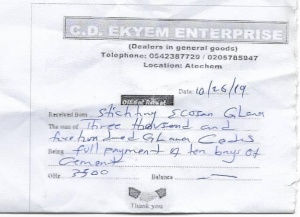 C.D. EKYEM ENTERPRISE
(Dealers in general goods)
Telephone: 0542387729 / 0205785947
Location: Atechem
Date: 10/26/19
Official Receipt
Received from Stichting Ecosan Ghana
The sum of Three thousand and
five hundred Ghana Cedis
Being full payment of ten bags of
Cement
GH¢ 3500 Balance
Thank you